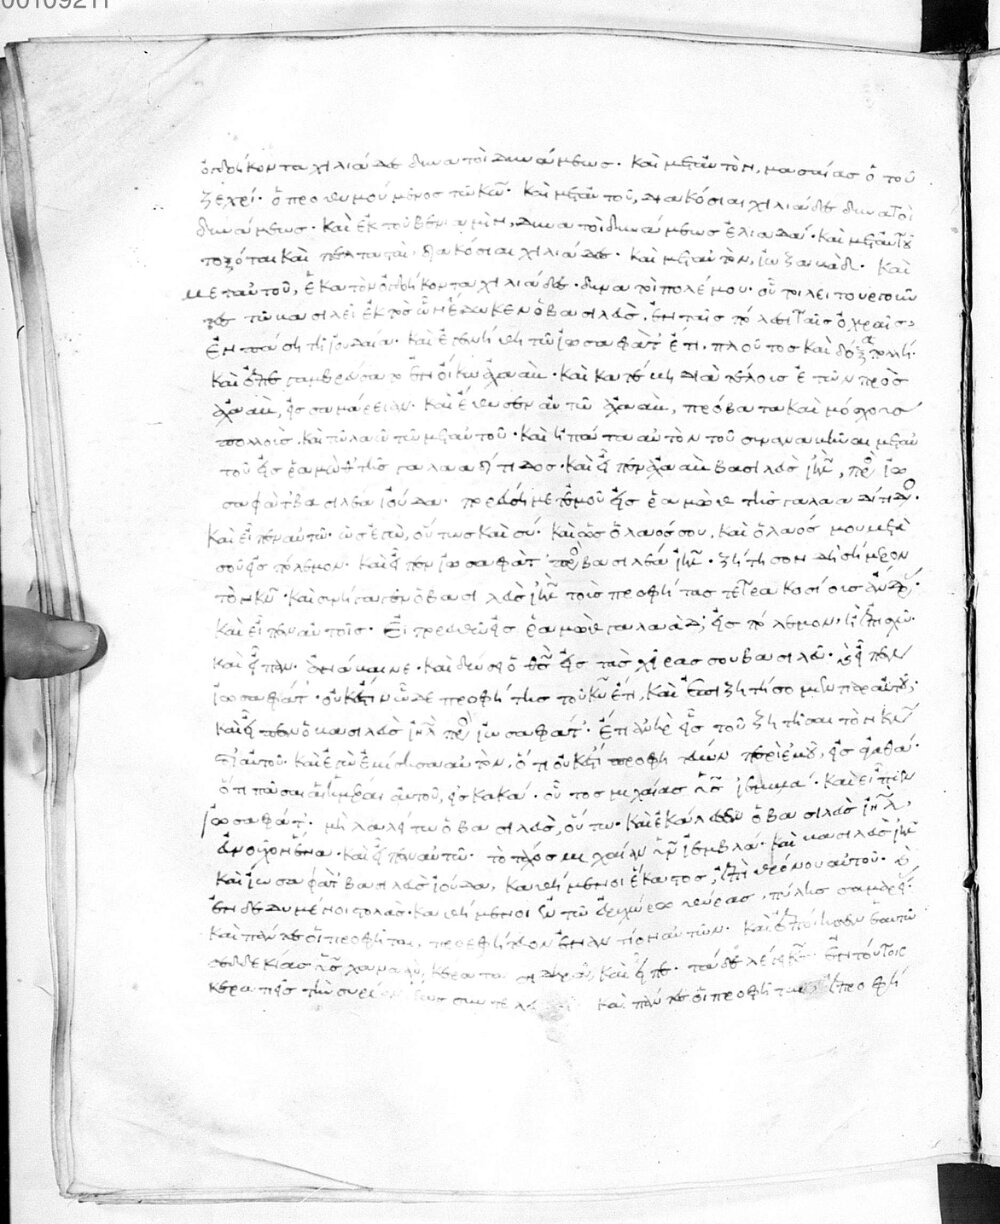 00109211
ὀγδοήκοντα χιλιάδες δυνατοὶ δυνάμεως. καὶ μετ αὐτὸν, μασαίας ὁ τοῦ
ζεχρί. ὁ προθυμούμενος τῶ κῶ. καὶ μετ αὐτοῦ, διακόσιαι χιλιάδες δυνατοὶ
δυνάμεως. καὶ ἐκ τοῦ βενιαμὶν, δυνατοὶ δυνάμεως ἐλιαδά. καὶ μετ αὐτοῦ
τοξόται καὶ πελτασταὶ, διακόσιαι χιλιάδες. καὶ μετ αὐτὸν, ἰωζαβάδ. καὶ
μετ αὐτοῦ, ἑκατὸν ὀγδοήκοντα χιλιάδες. δυνατοὶ πολέμου. οὗτοι λειτουργοῦν
τες τῶ βασιλεῖ ἐκτὸς ὧν ἔδωκεν ὁ βασιλεὺς, ἐν ταῖς πόλεσι ταῖς ὀχυραῖς,
ἐν πάση τῆ ἰουδαία. καὶ ἐγενήθη τῶ ἰωσαφὰτ ἔτι. πλοῦτος καὶ δόξα πολλή.
καὶ ἐπεγαμβρεύσατο ἐν οἴκω ἀχαάβ. καὶ κατέβη διὰ τέλους ἐτῶν πρὸς
ἀχαὰβ, εἰς σαμάρειαν. καὶ ἔθυσεν αὐτῶ ἀχαὰβ, πρόβατα καὶ μόσχους
πολλοὺς. καὶ τῶ λαῶ τῶ μετ αὐτοῦ. καὶ ἠπάτα αὐτὸν τοῦ συναναβῆναι μετ αὐ
τοῦ εἰς ῥαμὼθ τῆς γαλααδίτιδος. καὶ εἶπεν ἀχαὰβ βασιλεὺς ἰηλ, πρὸς ἰω
σαφὰτ βασιλέα ἰούδα. πορεύση μετ ἐμοῦ εἰς ῥαμὼθ τῆς γαλααδίτιδος.
καὶ εἶπεν αὐτῶ. ὡς ἐγὼ, οὕτως καὶ σύ. καὶ ὡς ὁ λαός σου, καὶ ὁ λαός μου μετὰ
σοῦ εἰς πόλεμον. καὶ εἶπεν ἰωσαφὰτ πρὸς βασιλέα ἰηλ. ζήτησον δὴ σήμερον
τὸν κν. καὶ συνήγαγεν ὁ βασιλεὺς ἰηλ τοὺς προφήτας τετρακοσίους ἄνδρας.
καὶ εἶπεν αὐτοῖς. εἰ πορευθῶ εἰς ῥαμὼθ γαλαὰδ, εἰς πόλεμον, ἢ ἐπίσχω.
καὶ εἶπαν. ἀνάβαινε. καὶ δώσει ὁ θς εἰς τὰς χεῖρας σου βασιλεῦ. καὶ εἶπεν
ἰωσαφάτ. οὐκ ἔστιν ὧδε προφήτης τοῦ κυ ἔτι, καὶ ἐπιζητήσομεν παρ αὐτοῦ;
καὶ εἶπεν ὁ βασιλεὺς ἰηλ πρὸς ἰωσαφάτ. ἔτι ἀνὴρ εἷς τοῦ ζητῆσαι τὸν κν
δι αὐτοῦ. καὶ ἐγὼ ἐμίσησα αὐτὸν, ὅτι οὐκ ἔστι προφητεύων περὶ ἐμοῦ, εἰς ἀγαθά.
ὅτι πᾶσαι αἱ ἡμέραι αὐτοῦ, εἰς κακά. οὗτος μιχαίας υἱὸς ἰεμλά. καὶ εἶπεν
ἰωσαφάτ. μὴ λαλείτω ὁ βασιλεὺς, οὕτω. καὶ ἐκάλεσεν ὁ βασιλεὺς ἰηλ,
εὐνοῦχον ἕνα. καὶ εἶπεν αὐτῶ. τὸ τάχος μιχαίαν υἱὸν ἰεμβλά. καὶ βασιλεὺς ἰηλ
καὶ ἰωσαφὰτ βασιλεὺς ἰούδα, καθήμενοι ἕκαστος, ἐπὶ θρόνου αὐτοῦ.
ἐνδεδυμένοι στολάς. καθήμενοι ἐν τῶ εὐρυχώρω θύρας, πύλης σαμαρείας.
καὶ πάντες οἱ προφῆται, προεφήτευον ἐναντίον αὐτῶν. καὶ ἐποίησεν ἑαυτῶ
σεδεκίας υἱὸς χαναὰν, κέρατα σιδηρᾶ, καὶ εἶπε. τάδε λέγει κς. ἐν τούτοις
κερατιεῖς τὴν συρίαν ἕως συντελ καὶ πάντες οἱ προφῆται, προεφή